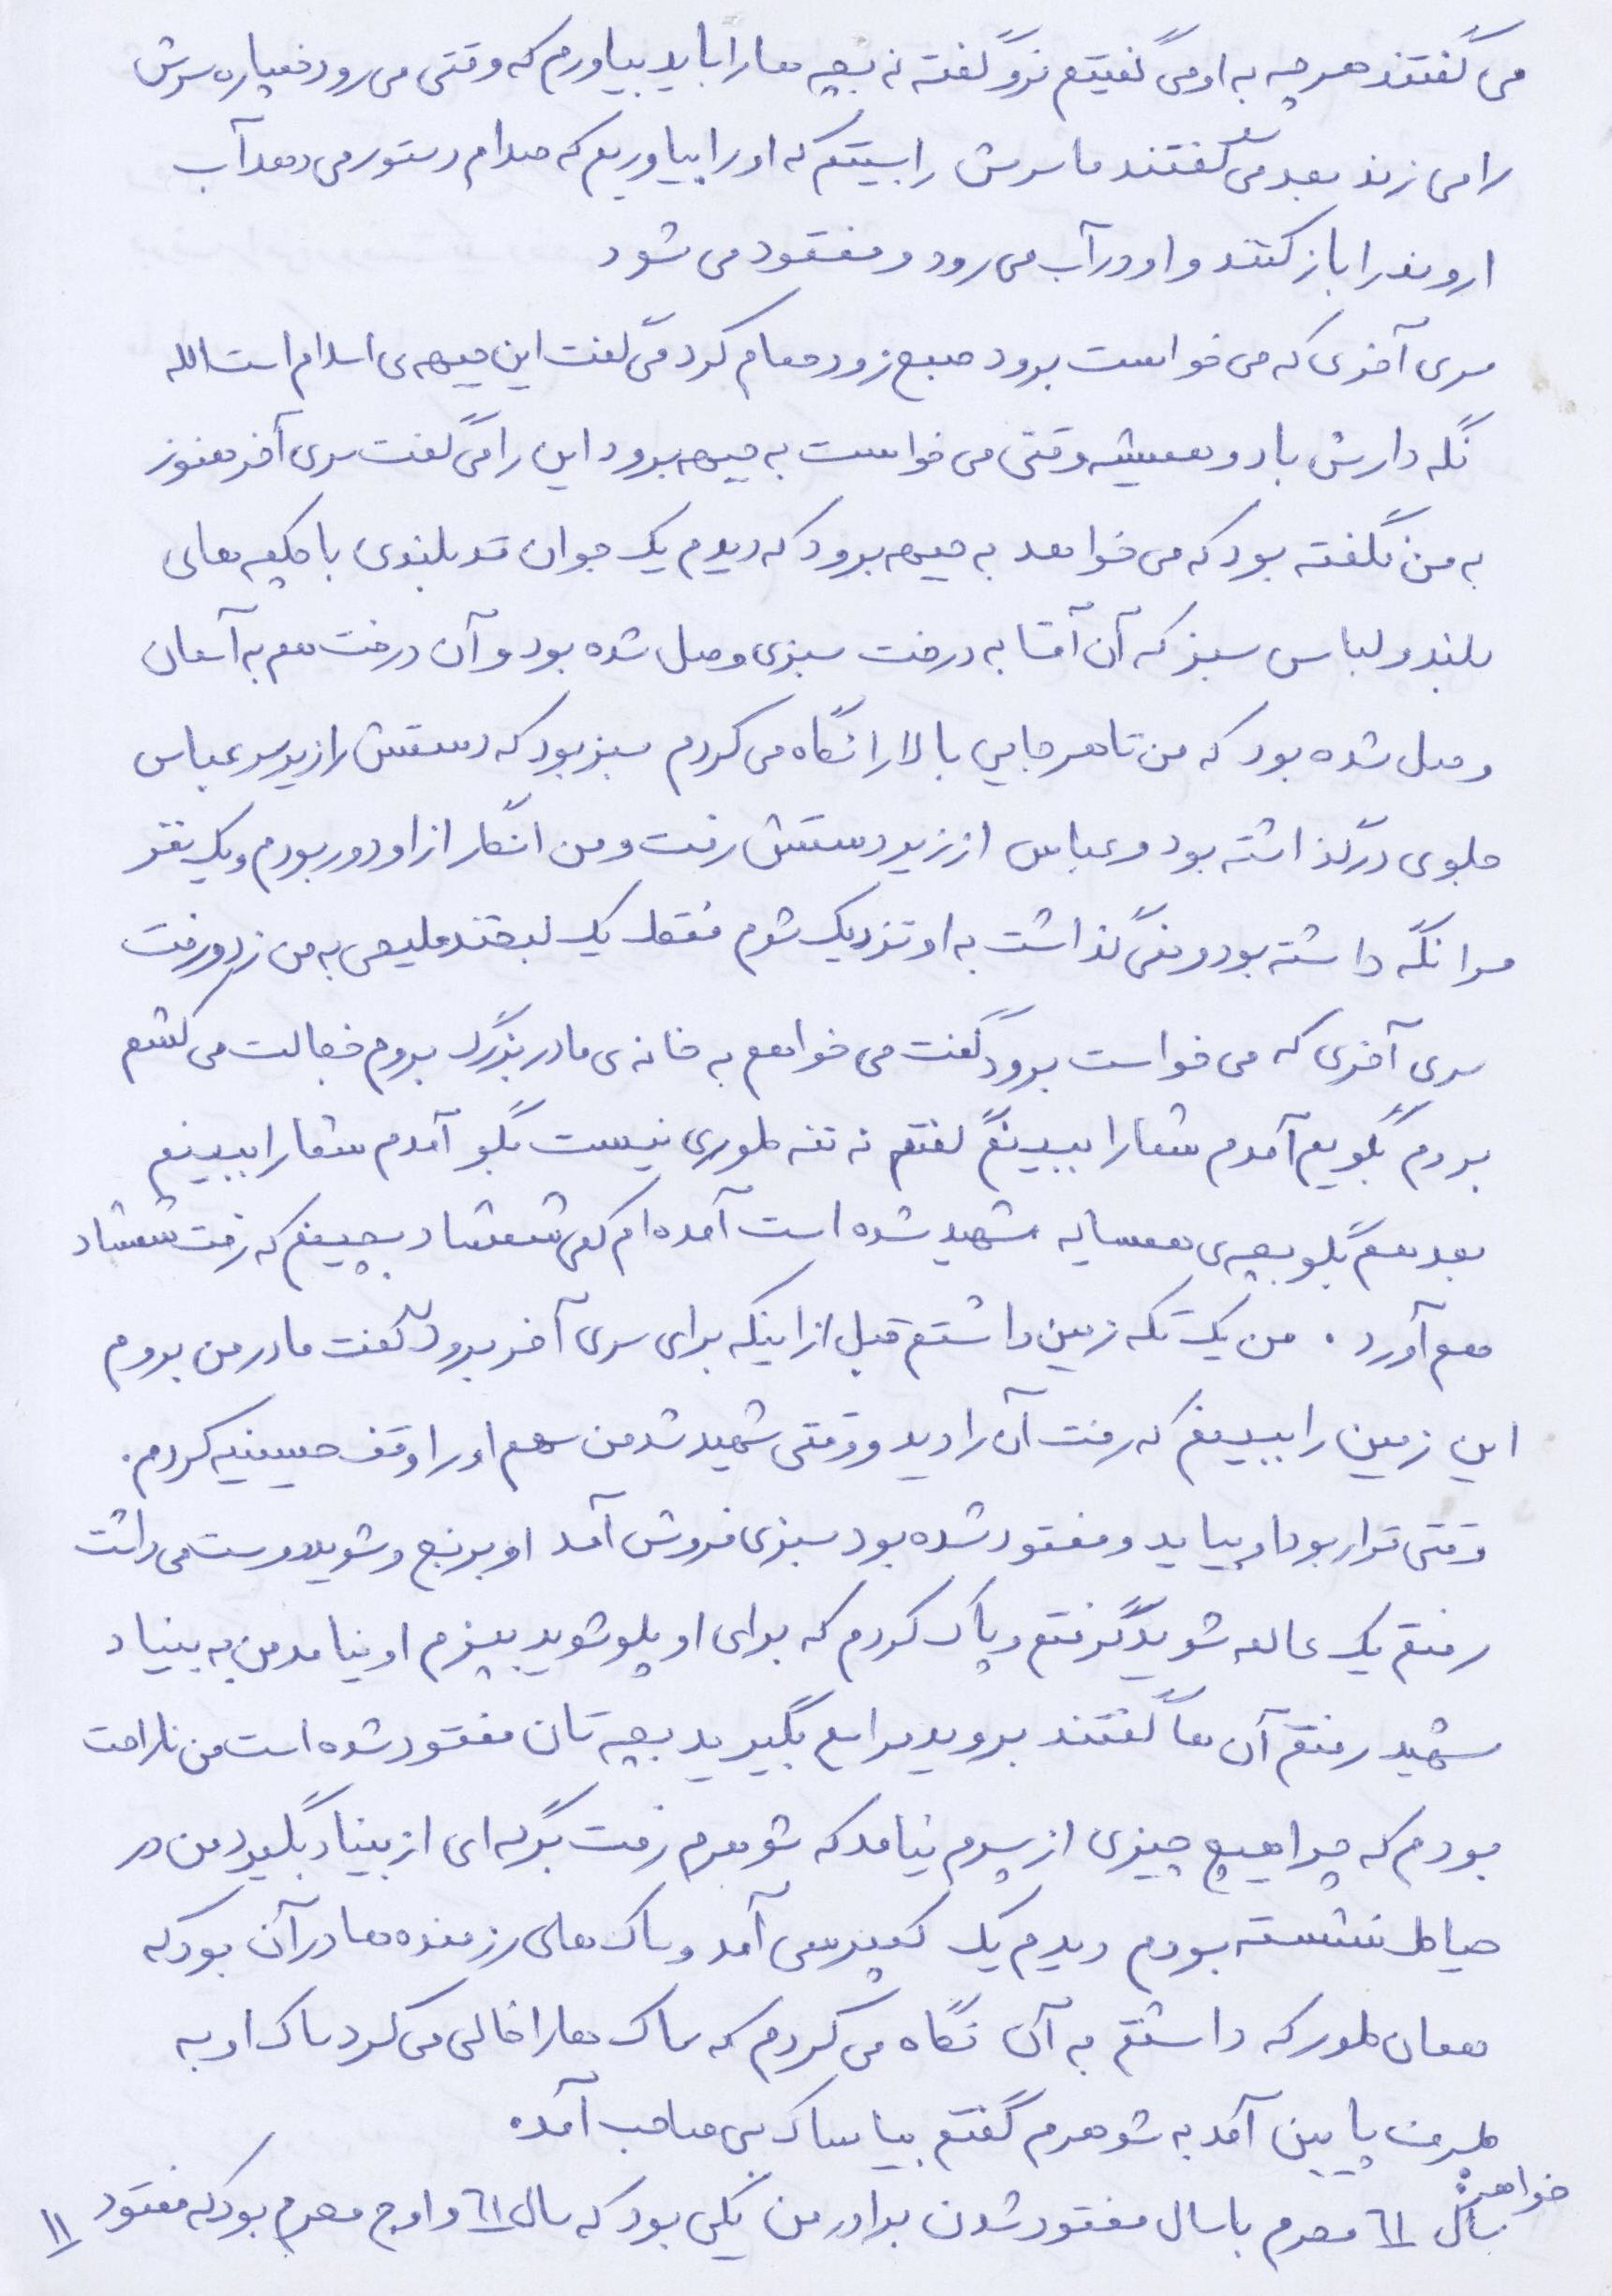 می گفتند هرچه به او می گفتیم نرو گفته نه بچه ها را باید بیاورم که وقتی می رود خمپاره سرش
را می زند بعد می گفتند ما سرش را بستیم که او را بیاوریم که صدام دستور می دهد آب
اروند را باز کنند و او در آب می رود و مفقود می شود
سری آخری که می خواست برود صبح زود حمام کرد می گفت این جبهه ی اسلام است الله
نگه دارش باد و همیشه وقتی می خواست به جبهه برود این را می گفت سری آخر هنوز
به من نگفته بود که می خواهد به جبهه برود که دیدم یک جوان قد بلندی با چکمه های
بلند و لباس سبز که آن آقا به درخت سبزی وصل شده بود و آن درخت هم به آسمان
وصل شده بود که من تا هر جایی بالا را نگاه می کردم سبز بود که دستش را زیر سر عباس
جلوی در گذاشته بود و عباس از زیر دستش رفت و من انگار از او دور بودم و یک نفر
مرا نگه داشته بود و نمی گذاشت به او نزدیک شوم فقط یک لبخند ملیحی به من زد و رفت
سری آخری که می خواست برود گفت می خواهم به خانه ی مادربزرگ بروم خجالت می کشم
بروم بگویم آمدم شما را ببینم گفتم نه ننه طوری نیست بگو آمدم شما را ببینم
بعد هم بگو بچه ی همسایه شهید شده است آمده ام کمی شمشاد بچینم که رفت شمشاد
هم آورد. من یک تکه زمین داشتم قبل از اینکه برای سری آخر برود گفت مادر من بروم
این زمین را ببینم که رفت آن را دید و وقتی شهید شد من سهم او را وقف حسینیه کردم.
وقتی قرار بود او بیاید و مفقود شده بود سبزی فروش آمد او برنج و شوید دوست می داشت
رفتم یک عالمه شوید گرفتم و پاک کردم که برای او پلو شوید بپزم او نیامد من به بنیاد
شهید رفتم آن ها گفتند بروید مراسم بگیرید بچه تان مفقود شده است من ناراحت
بودم که چرا هیچ چیزی از پسرم نیامد که شوهرم رفت برگه ای از بنیاد بگیرد من در
حیاط نشسته بودم دیدم یک کمپرسی آمد و ساک های رزمنده ها در آن بود که
همان طور که داشتم به آن نگاه می کردم که ساک ها را خالی می کرد ساک او به
طرف پایین آمد به شوهرم گفتم بیا ساک بی صاحب آمده
خواهر:
سال ٦١ محرم با سال مفقود شدن برادر من یکی بود که سال ٦١ و اوج محرم بود که مفقود
١١